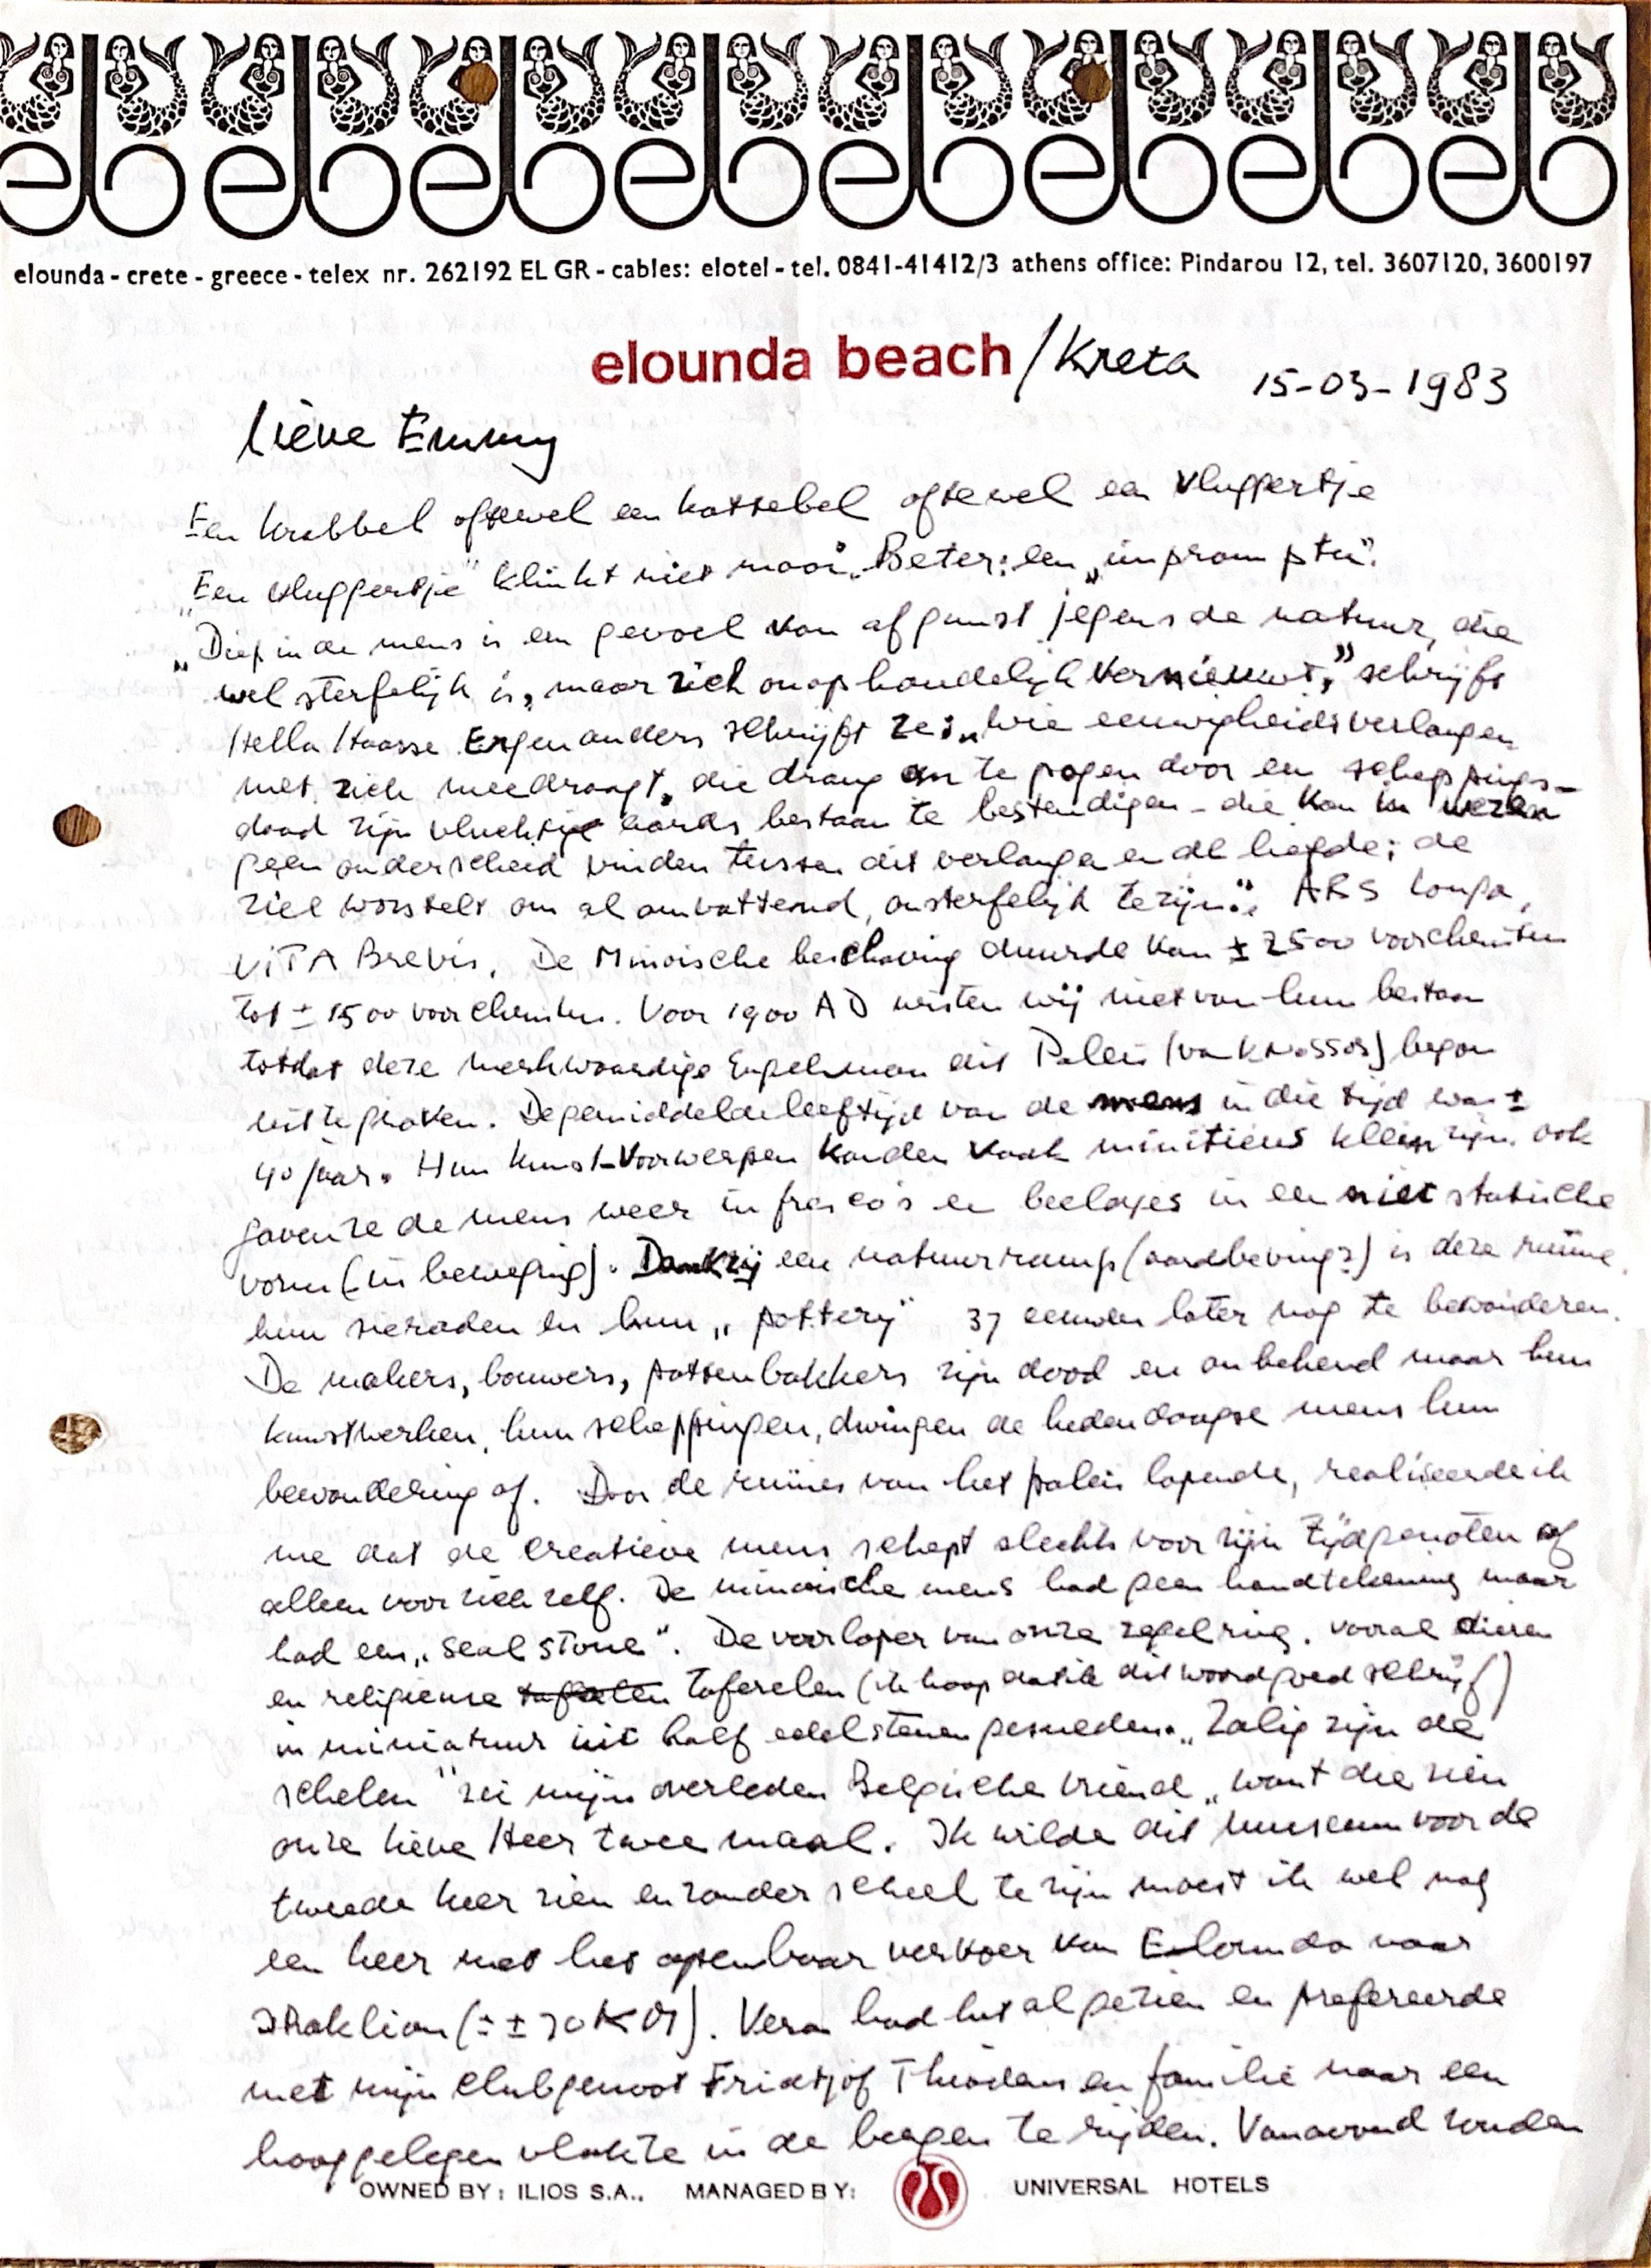 ebebebebebebebeb
elounda - crete - greece - telex nr. 262192 EL GR - cables: elotel - tel. 0841-41412/3 athens office: Pindarou 12, tel. 3607120, 3600197
elounda beach / Kreta 15-03-1983
lieve Emmy
Een krabbel oftewel een kattebel oftewel een vluggertje
"Een vluggertje" klinkt niet mooi. Beter: een „impromptu".
„Diep in de mens is een gevoel van afgunst jegens de natuur, die
wel sterfelijk is, maar zich onophoudelijk vernieuwt," schrijft
Hella Haasse. Ergens anders schrijft ze: „wie eeuwigheidsverlangen
met zich meedraagt, die drang om te pogen door een scheppings-
daad zijn vluchtige aards bestaan te bestendigen - die kan in wezen
geen onderscheid vinden tussen dit verlangen en de liefde; de
ziel worstelt om al omvattend, onsterfelijk te zijn". ARS longa,
VITA Brevis. De Minoische beschaving duurde van ± 2500 voorchristus
tot ± 1500 voorchristus. Voor 1900 AD wisten wij niet van hun bestaan
totdat deze merkwaardige Engelsman dit Paleis (van Knossos) begon
uit te graven. De gemiddelde leeftijd van de mens in die tijd was ±
40 jaar. Hun kunst-voorwerpen konden vaak minitieus klein zijn. ook
gaven ze de mens weer in fresco's en beeldjes in een niet statische
vorm (in beweging). Dankzij een natuurramp (aardbeving?) is deze ruïne,
hun sieraden en hun „pottery" 37 eeuwen later nog te bewonderen.
De makers, bouwers, pottenbakkers zijn dood en onbekend maar hun
kunstwerken, hun scheppingen, dwingen de hedendaagse mens hun
bewondering af. Door de ruïnes van het paleis lopende, realiseerde ik
me dat de creatieve mens schept slechts voor zijn tijdgenoten of
alleen voor zich zelf. De minoische mens had geen handtekening maar
had een „seal stone". De voorloper van onze zegelring. vooral dieren
en religieuse taferelen (ik hoop dat ik dit woord goed schrijf)
in miniatuur uit half edelstenen gesneden. „Zalig zijn de
schelen" zei mijn overleden Belgische vriend „want die zien
onze lieve Heer twee maal. Ik wilde dit museum voor de
tweede keer zien en zonder scheel te zijn moest ik wel nog
een keer met het openbaar vervoer van Elounda naar
Iraklion (± 70 KM). Vera had het al gezien en prefereerde
met mijn clubgenoot Fridtjof en familie naar een
hooggelegen vlakte in de bergen te rijden. Vanavond zouden
OWNED BY: ILIOS S.A.. MANAGED BY: UNIVERSAL HOTELS